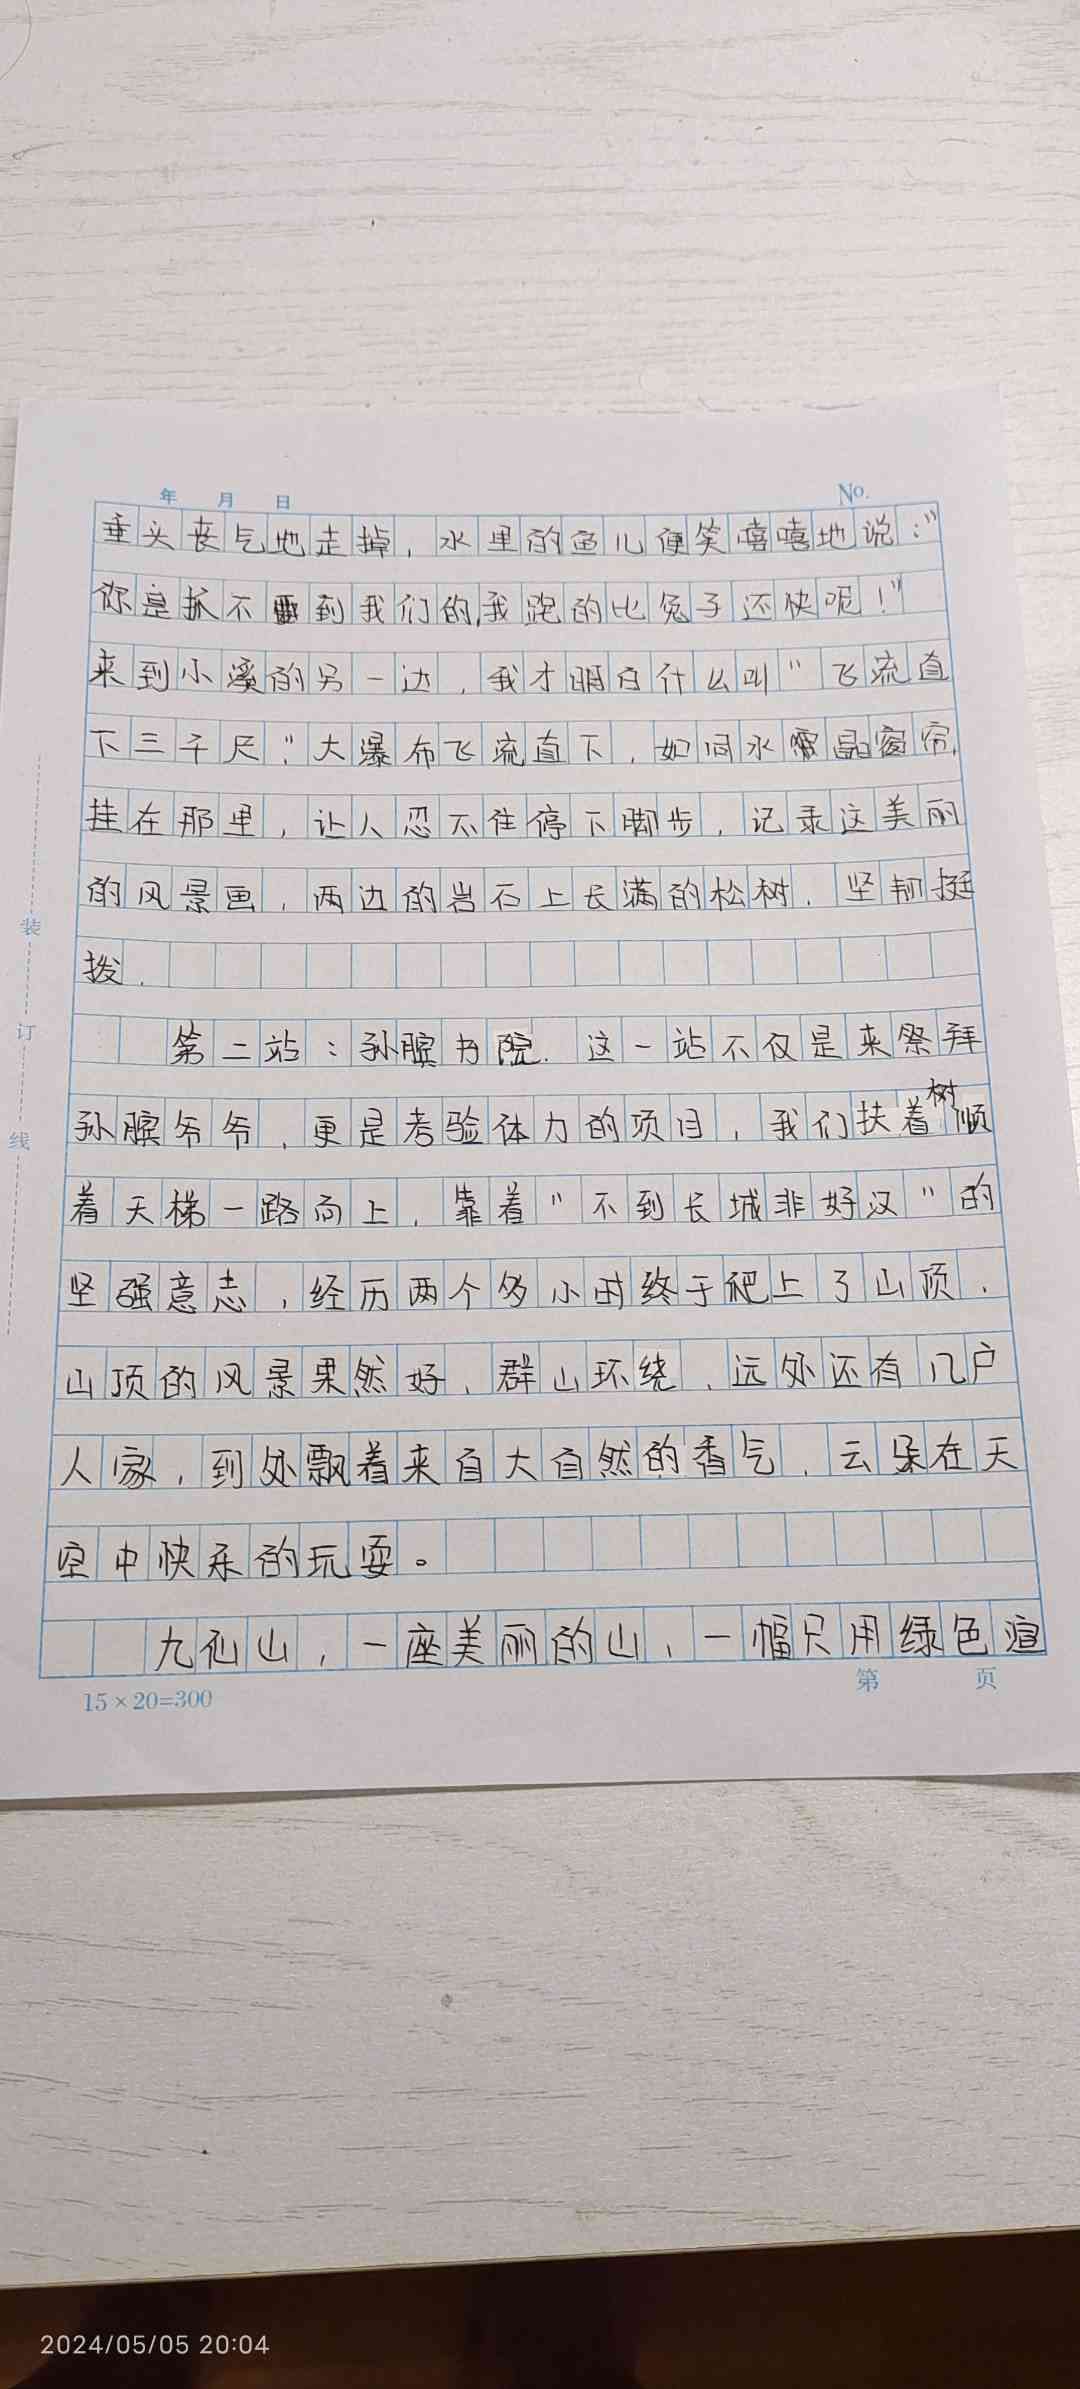 年 月 日 No.
垂头丧气地走掉，水里的鱼儿便笑嘻嘻地说："
你是抓不到我们的,我跑的比兔子还快呢！"
来到小溪的另一边，我才明白什么叫"飞流直
下三千尺"，大瀑布飞流直下，如同水晶窗帘,
挂在那里，让人忍不住停下脚步，记录这美丽
的风景画，两边的岩石上长满的松树．坚韧挺
拨．
第二站：孙膑书院．这一站不仅是来祭拜
孙膑爷爷，更是考验体力的项目，我们扶着树顺
着天梯一路向上．靠着"不到长城非好汉"的
坚强意志，经历两个多小时终于爬上了山顶．
山顶的风景果然好、群山环绕．远处还有几户
人家，到处飘着来自大自然的香气．云朵在天
空中快乐的玩耍。
九仙山，一座美丽的山，一幅只用绿色渲
15×20=300 第 页
装
订
线
2024/05/05 20:04